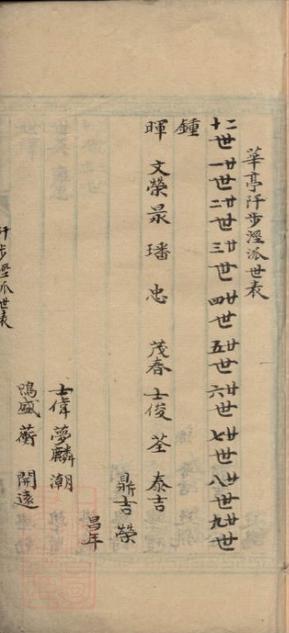 華亭阡步涇派世表
二十世 廿一世 廿二世 廿三世 廿四世 廿五世 廿六世 廿七世 廿八世 廿九世
鍾
暉 文榮 杲 璠 忠 茂春 士俊 荃 泰吉
鼎吉 榮
昌年
士偉 夢麟 潮
鳴盛 蘅 開遠
阡步涇派世表